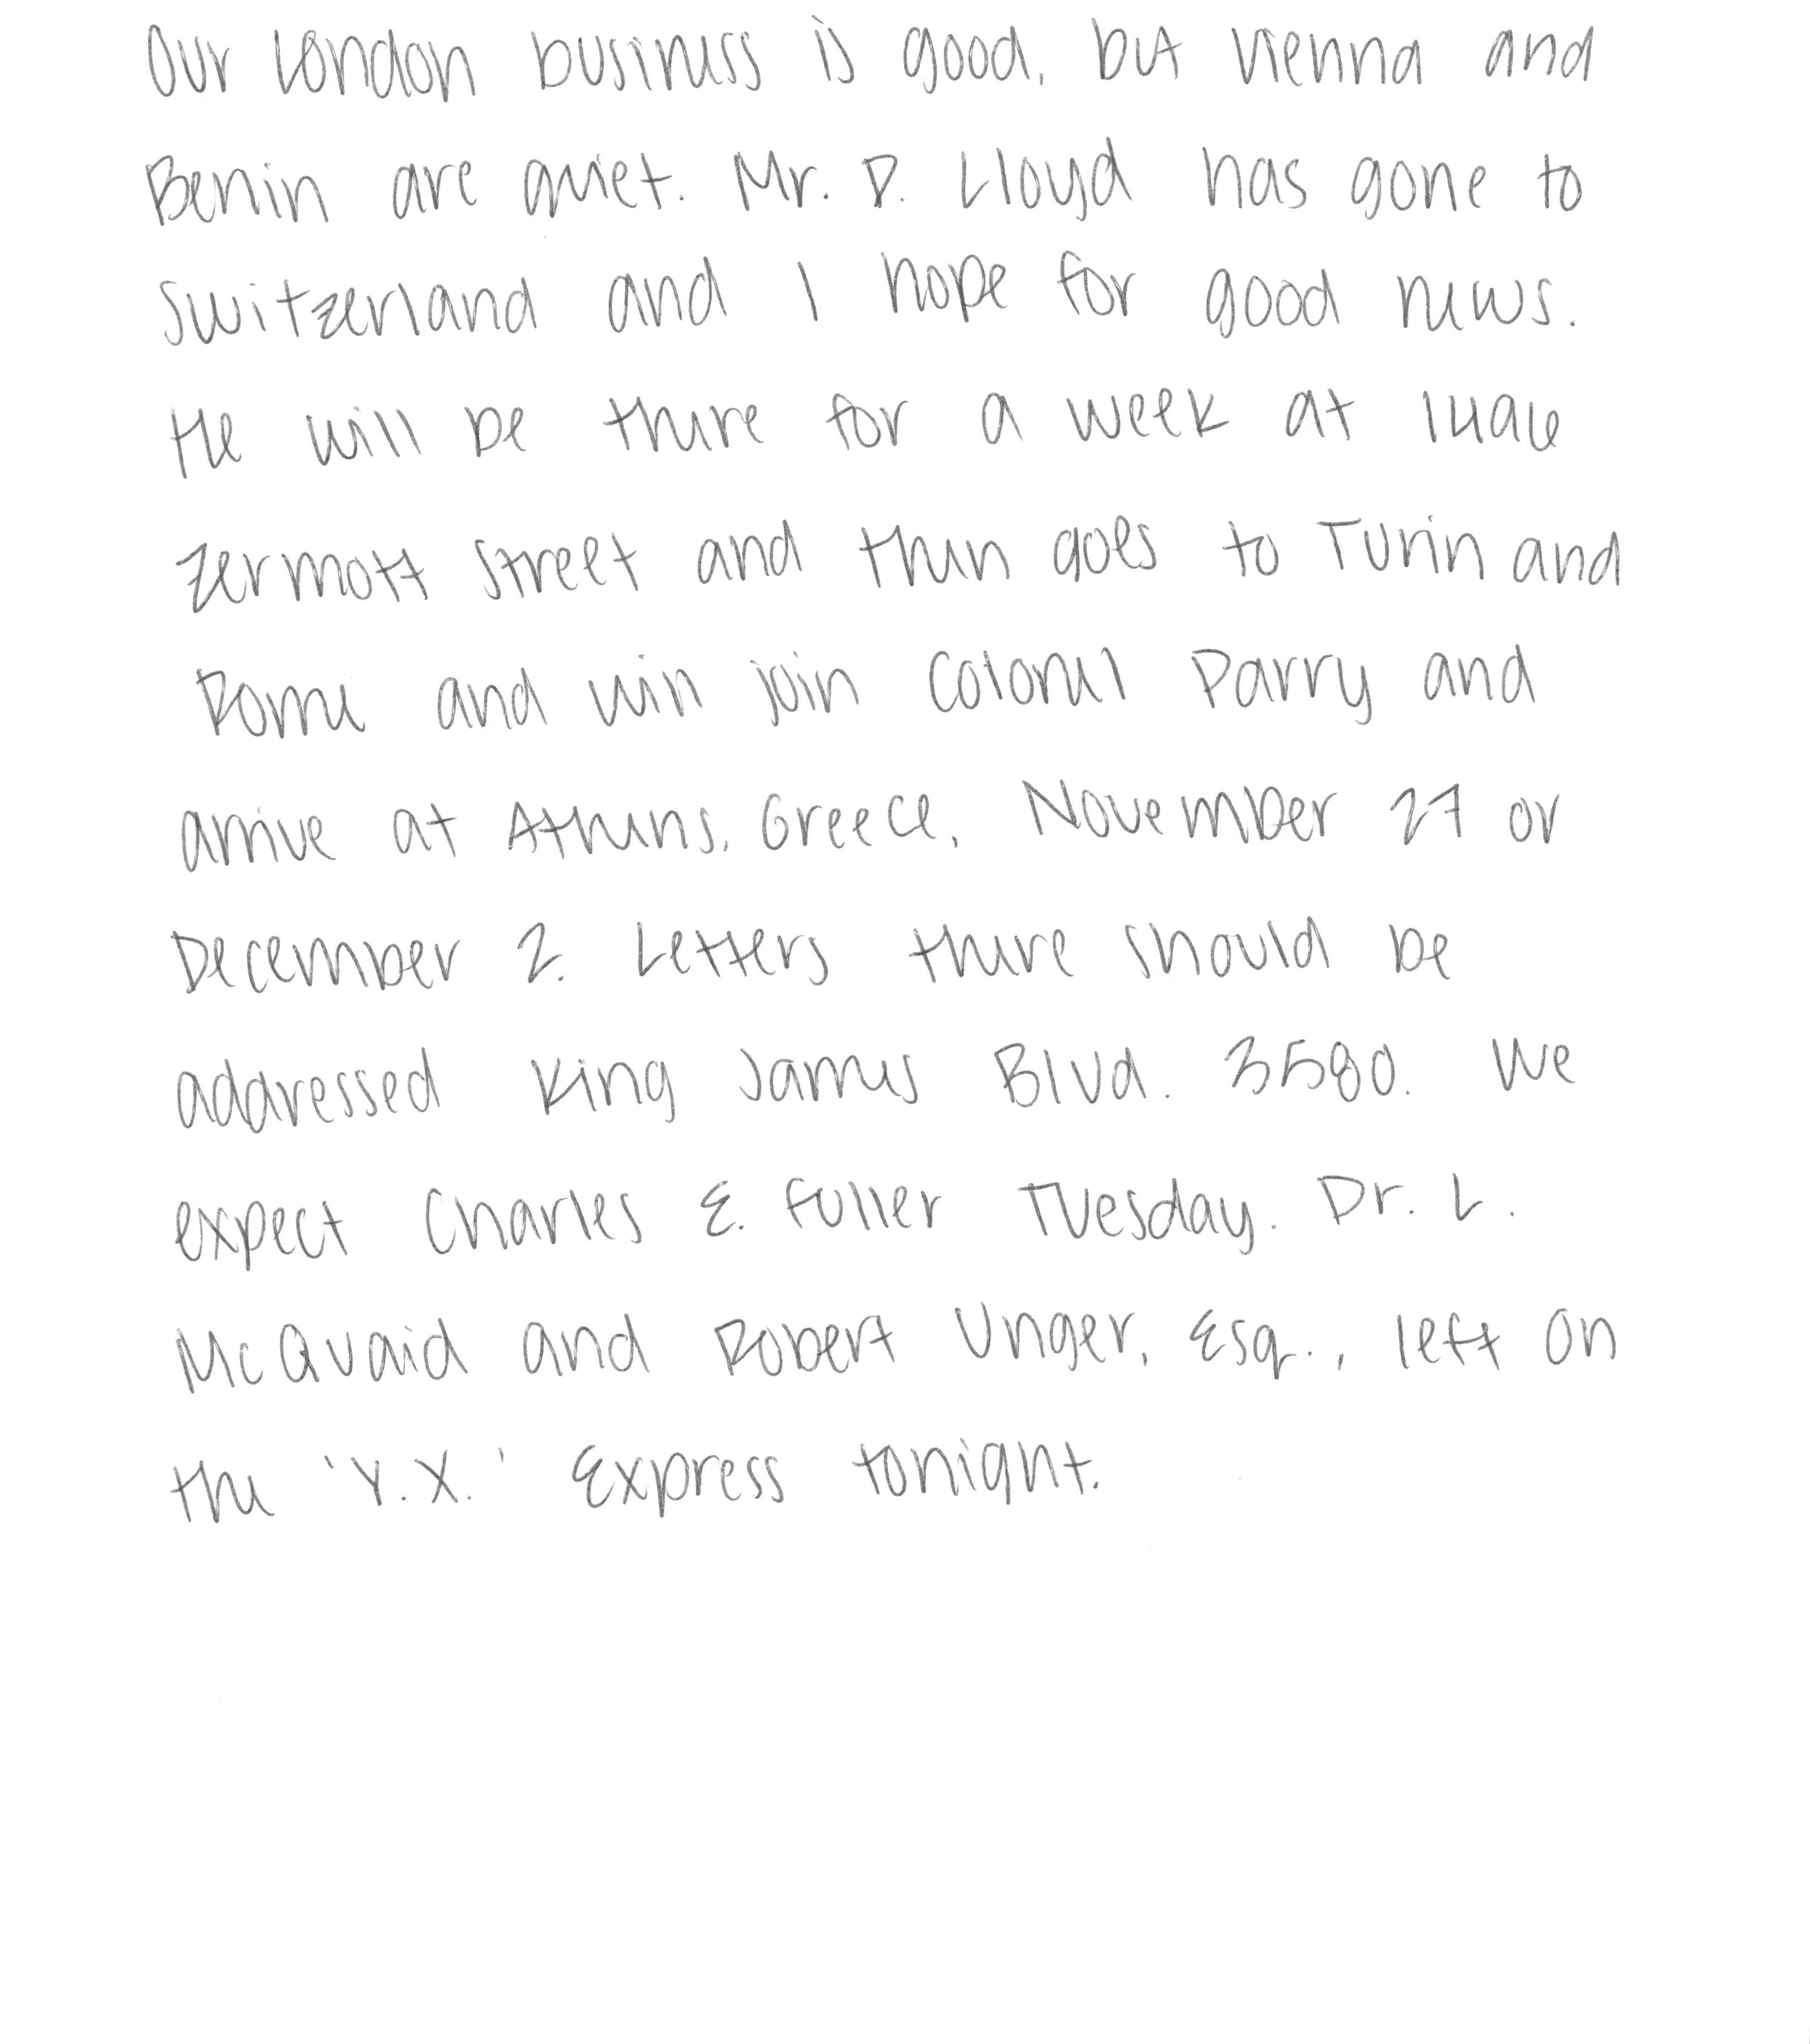 Our London business is good, but Vienna and
Benin are quiet. Mr. P. Lloyd has gone to
Switzerland and I hope for good news.
He will be there for a week at 1496
Zermott Street and then goes to Turin and
Rome and will join Colonel Parry and
arrive at Athens, Greece, November 27 or
December 2. Letters there should be
addressed King James Blvd. 3580. We
expect Charles E. Fuller Tuesday. Dr. L.
McQuaid and Robert Unger, Esq., left on
the 'Y.X.' Express tonight.